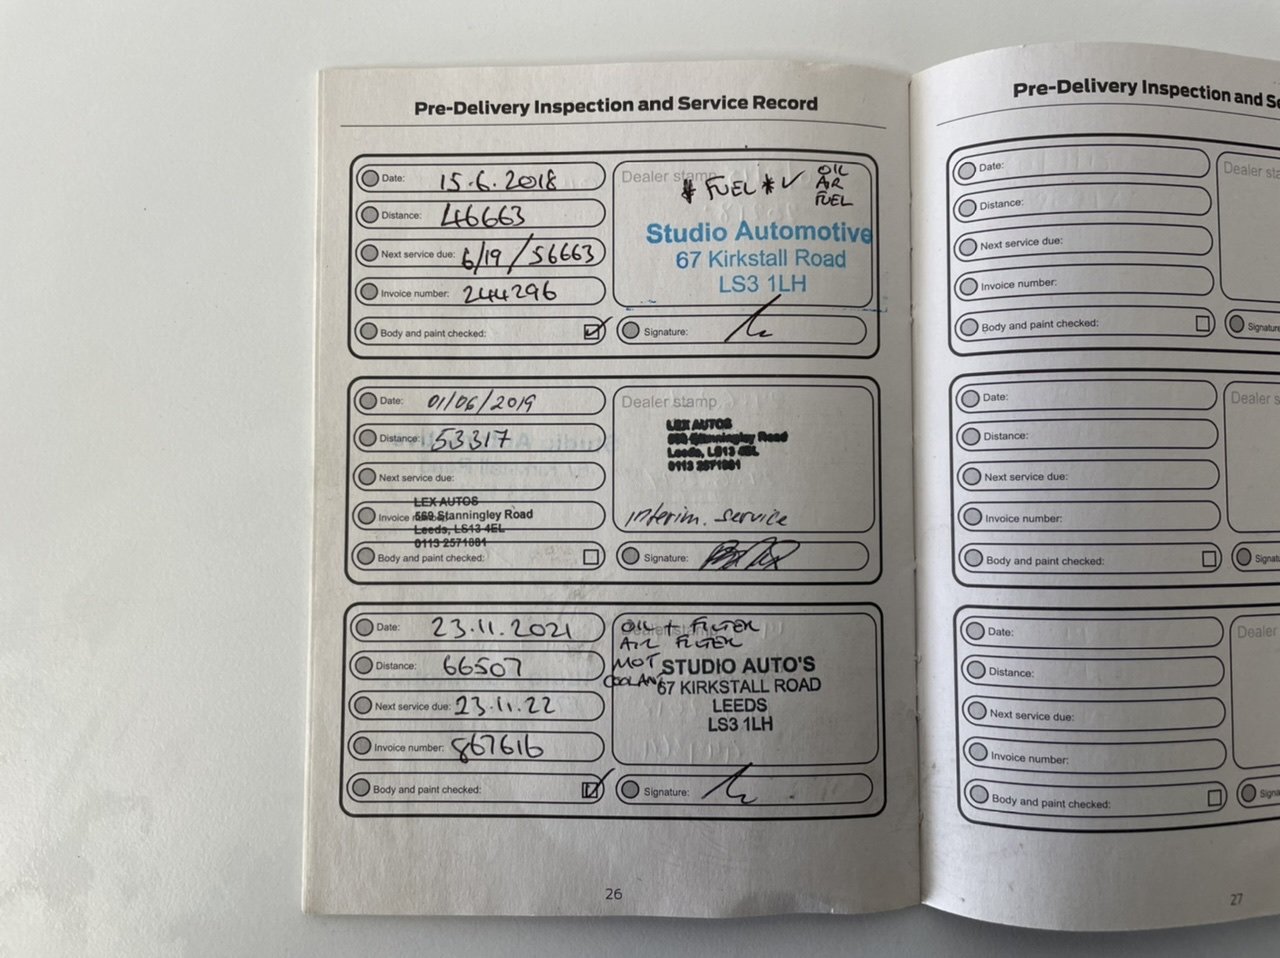 Pre-Delivery Inspection and Service Record
Date: 15.6.2018
Distance: 46663
Next service due: 6/19/56663
Invoice number: 244296
Body and paint checked:
Dealer stamp
* FUEL * ✓
OIL
AIR
FUEL
Studio Automotive
67 Kirkstall Road
LS3 1LH
Signature:
Date: 01/06/2019
Distance: 53317
Next service due:
Invoice
LEX AUTOS
569 Stanningley Road
Leeds, LS13 4EL
0113 2571881
Body and paint checked:
Dealer stamp
LEX AUTOS
569 Stanningley Road
Leeds, LS13 4EL
0113 2571881
interim. service
Signature:
Date: 23.11.2021
Distance: 66507
Next service due: 23.11.22
Invoice number: 867616
Body and paint checked:
Dealer stamp
OIL + FILTER
AIR FILTER
MOT
COOLANT
STUDIO AUTO'S
67 KIRKSTALL ROAD
LEEDS
LS3 1LH
Signature:
26
Pre-Delivery Inspection and Se
Date:
Distance:
Next service due:
Invoice number:
Body and paint checked:
Dealer sta
Signature
Date:
Distance:
Next service due:
Invoice number:
Body and paint checked:
Dealer s
Signa
Date:
Distance:
Next service due:
Invoice number:
Body and paint checked:
Dealer
Signa
27